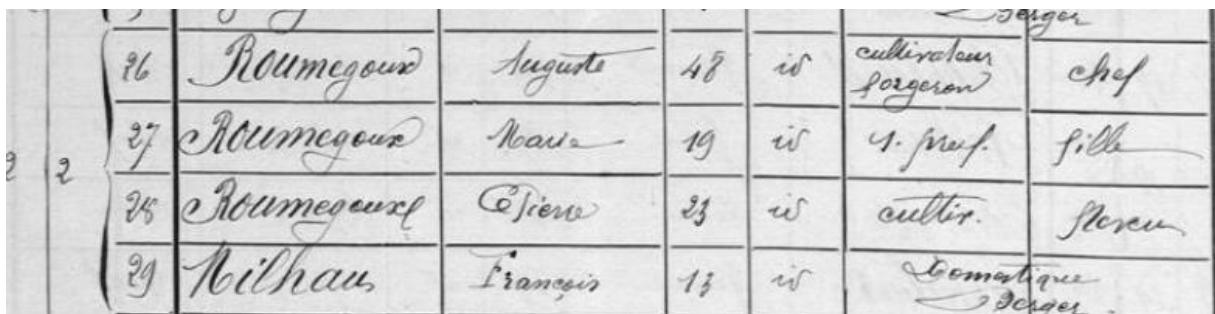 Berger
26 Roumegoux Auguste 48 id cultivateur forgeron chef
27 Roumegoux Marie 19 id s. prof. fille
2 2
28 Roumegoux Pierre 23 id cultiv. neveu
29 Milhau François 13 id Domestique
Berger